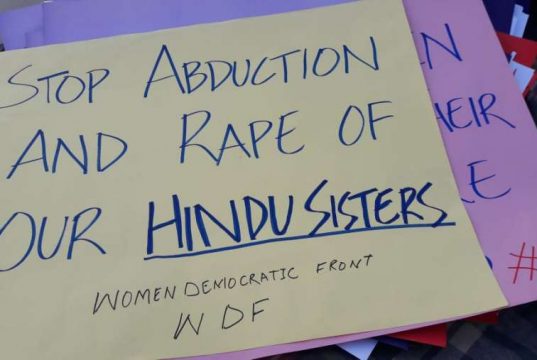 STOP ABDUCTION
AND RAPE OF
OUR HINDU SISTERS
WOMEN DEMOCRATIC FRONT
WDF
HEIR
#